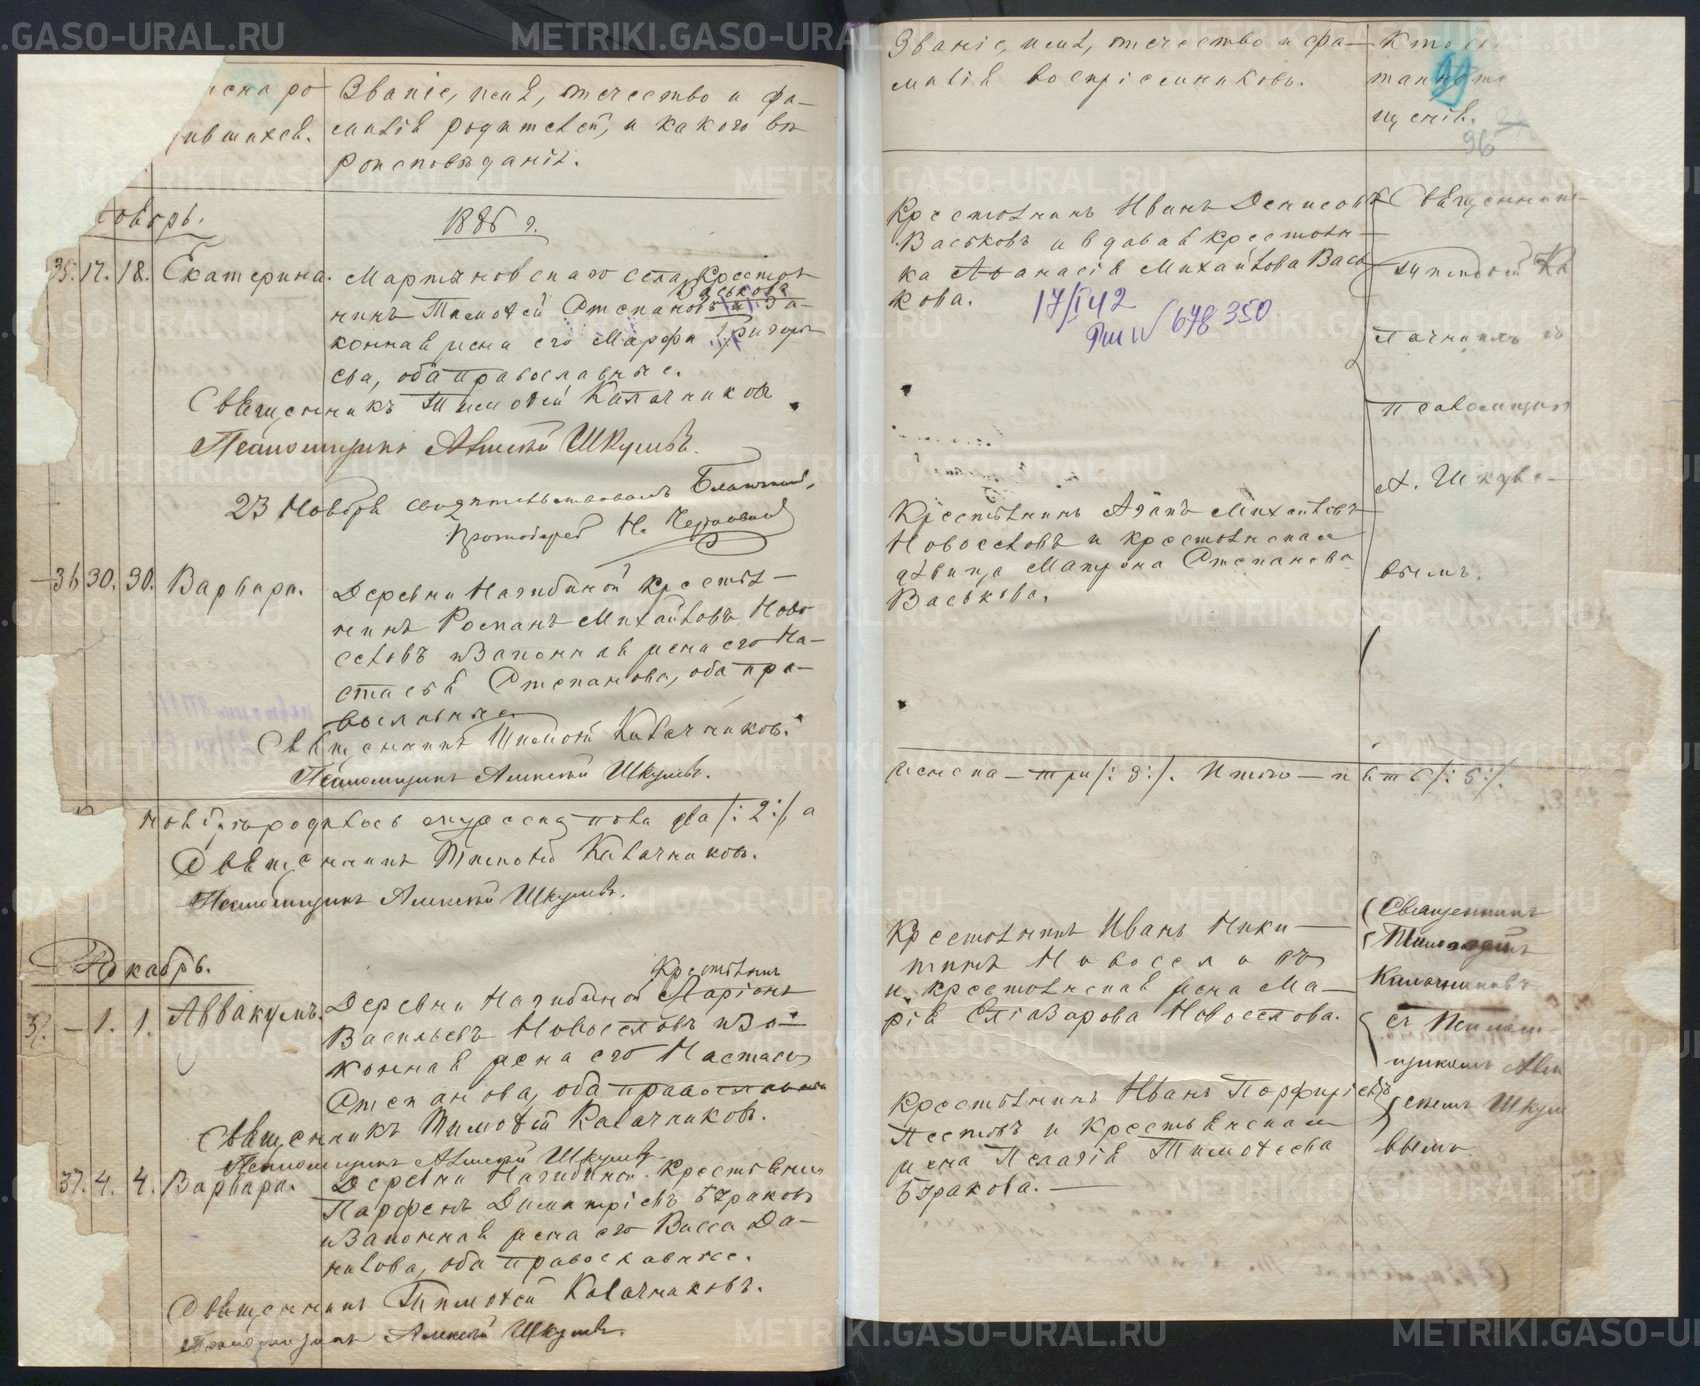 Званіе, имя, отчество и фа-
милія родителей, и какого вѣ
роисповѣданія.
1886 г.
35. 17. 18. Екатерина. Мартыновскаго села, крестья
Васьковъ
нинъ Тимофей Степановъ и за-
конная жена его Марфа Григорь
ева, оба православные.
Священникъ Тимофей Калачниковъ
Псаломщикъ Алексѣй Шкулевъ.
23 Ноября свидѣтельствовалъ Благочинный,
Протоіерей Н.
30. 30. Варвара. Деревни Нагибиной крестья-
нинъ Романъ Михайловъ Ново
селовъ и законная жена его На-
стасья Степанова, оба пра-
вославные
Священникъ Тимофей Калачниковъ.
Псаломщикъ Алексѣй Шкулевъ.
родилось мужеска пола два /: 2 :/, а
Священникъ Тимофей Калачниковъ.
Псаломщикъ Алексѣй Шкулевъ.
Декабрь.
Крестьянинъ
1. 1. Аввакумъ. Деревни Нагибиной Ларіонъ
Васильевъ Новоселовъ и за-
конная жена его Настасья
Степанова, оба православные
Священникъ Тимофей Калачниковъ.
Псаломщикъ Алексѣй Шкулевъ.
37. 4. 4. Варвара. Деревни Нагибиной крестьянинъ
Парфенъ Димитріевъ Бураковъ
и законная жена его Васса Да-
нилова, оба православные.
Священникъ Тимофей Калачниковъ.
Псаломщикъ Алексѣй Шкулевъ.
Званіе, имя, отчество и фа-
милія воспріемниковъ.
щенія.
96
Крестьянинъ Иванъ Денисовъ
Васьковъ и вдовая крестьян-
ка Афанасія Михайлова Вась
кова.
17/I 42
№ 678350
Крестьянинъ Агапъ Михайловъ
Новоселовъ и крестьянская
дѣвица Матрона Степанова
Васькова.
Священник
Тимофей Ка
лачниковъ съ
псаломщик
А. Шкуле-
вымъ.
женска - три /: 3 :/. Итого - пять /: 5 :/.
Крестьянинъ Иванъ Ники-
тинъ Новоселовъ
и крестьянская жена Ма-
рія Елизарова Новоселова.
Крестьянинъ Иванъ Порфирьевъ
Пестовъ и крестьянская
жена Пелагія Тимофеева
Буракова.
Священникъ
Тимофей
Калачниковъ
съ Псалом-
щикомъ Алек
сѣемъ Шкул
вымъ
METRIKI.GASO-URAL.RU